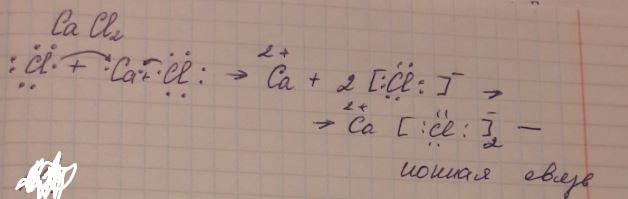 CaCl₂
:Cl· + ·Ca· + ·Cl: → Ca²⁺ + 2 [:Cl:]⁻ →
→ Ca²⁺ [:Cl:]⁻₂ —
ионная связь